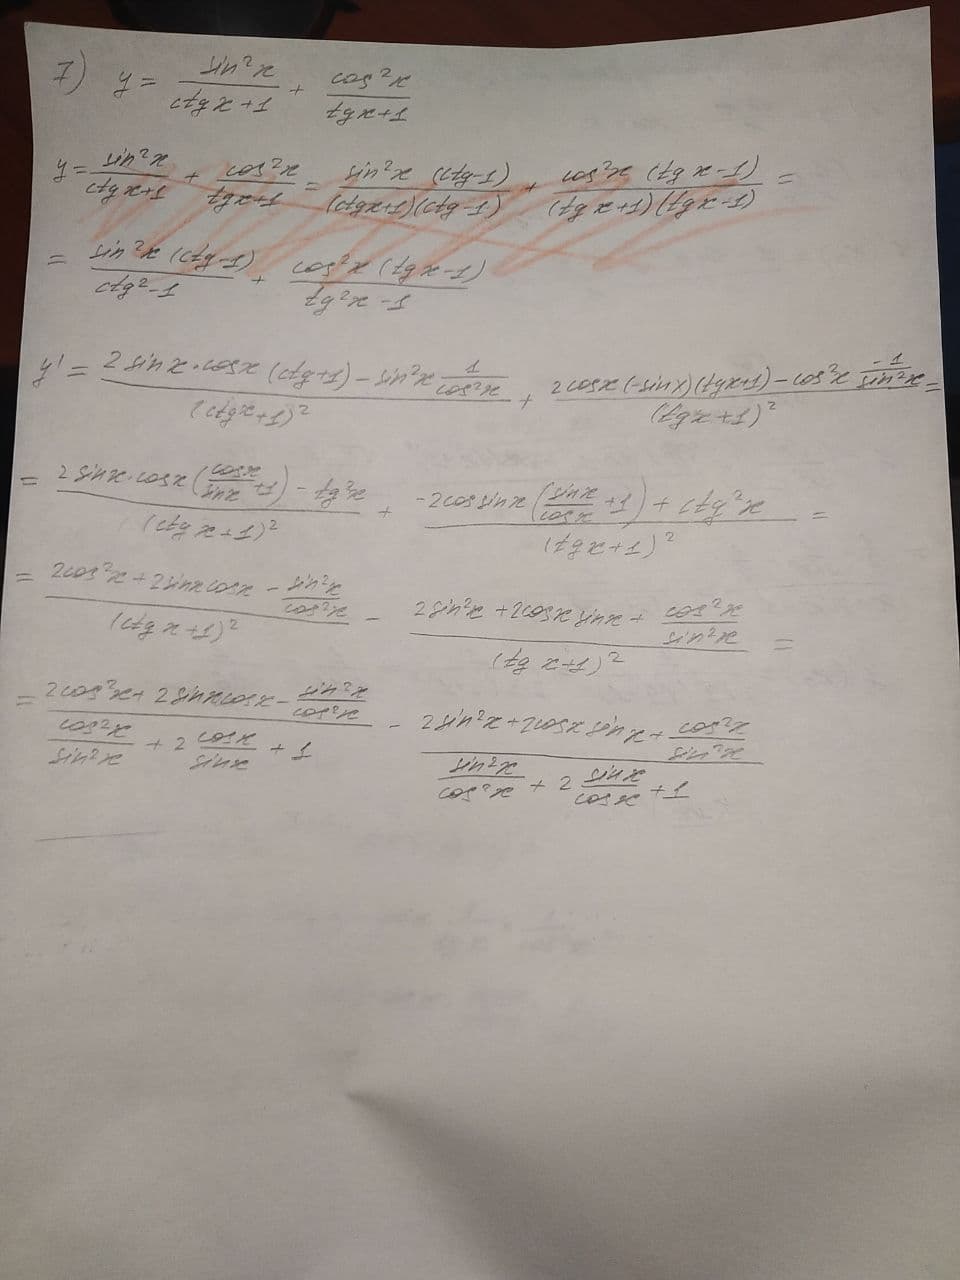 7) y = sin²x / (ctg x + 1) + cos²x / (tg x + 1)
y = sin²x / (ctg x + 1) + cos²x / (tg x + 1) = sin²x (ctg - 1) / (ctgx + 1)(ctg - 1) + cos²x (tg x - 1) / (tg x + 1)(tg x - 1) =
= sin²x (ctg - 1) / (ctg² - 1) + cos²x (tg x - 1) / (tg²x - 1)
y' = (2 sin x · cos x (ctg + 1) - sin²x 1/cos²x) / (ctgx + 1)² + (2 cosx (-sin x)(tgx + 1) - cos²x -1/sin²x) / (tgx + 1)² =
= (2 sin x · cos x (cosx/sinx + 1) - tg²x) / (ctg x + 1)² + (-2cos sin x (sinx/cosx + 1) + ctg²x) / (tgx + 1)² =
= (2cos²x + 2sinx cosx - sin²x/cos²x) / (ctg x + 1)² - (2 sin²x + 2cosx sinx + cos²x/sin²x) / (tg x + 1)² =
= (2cos²x + 2 sinx cosx - sin²x/cos²x) / (cos²x/sin²x + 2 cosx/sinx + 1) - (2 sin²x + 2cosx sin x + cos²x/sin²x) / (sin²x/cos²x + 2 sinx/cosx + 1)